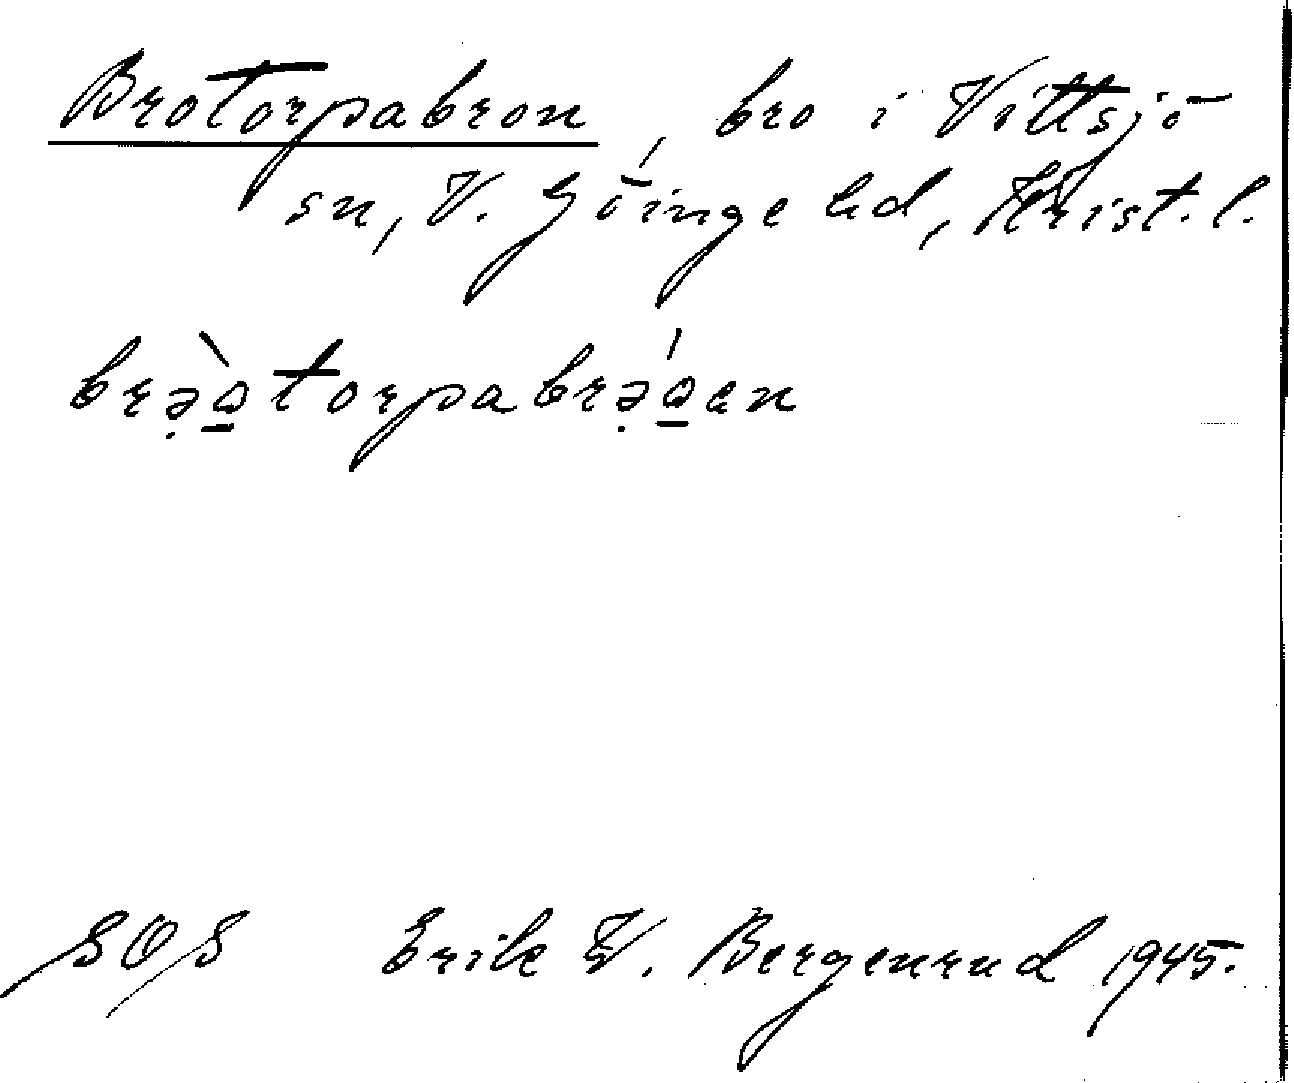 Brotorpabron, bro i Vittsjö
sn, V. Göinge hd, Krist. l.
brə̣̀o̲torpabrə̣ó̲en
SOS Erik W. Bergenrud 1945.